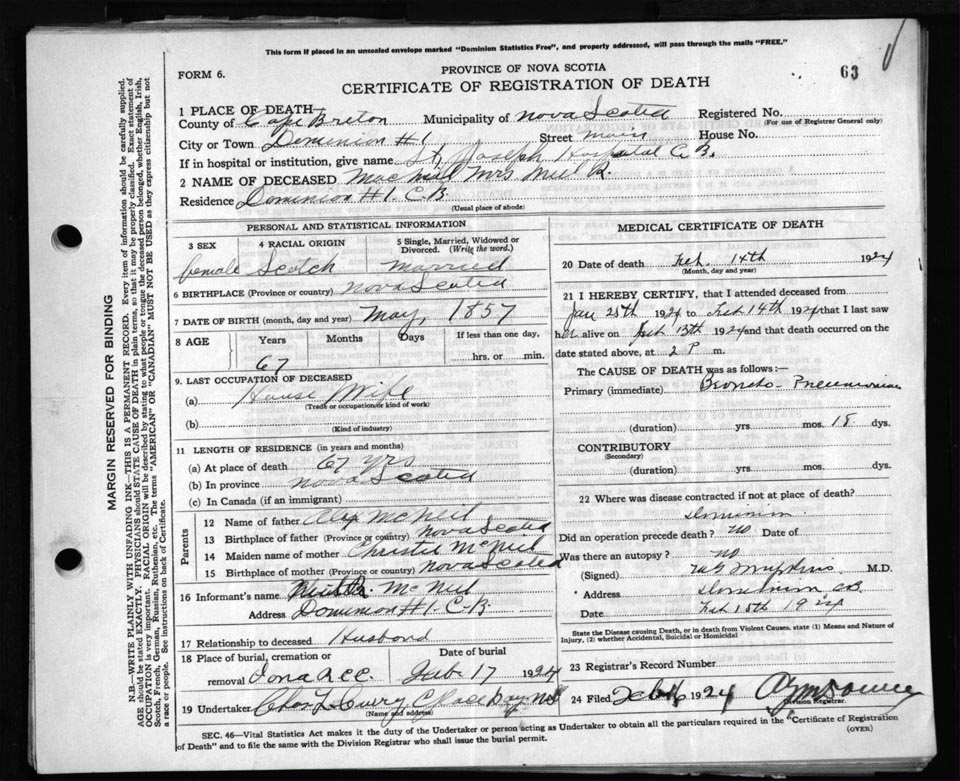 This form if placed in an unsealed envelope marked "Dominion Statistics Free", and properly addressed, will pass through the mails "FREE."
FORM 6.
PROVINCE OF NOVA SCOTIA
63
CERTIFICATE OF REGISTRATION OF DEATH
1 PLACE OF DEATH
County of Cape Breton Municipality of Nova Scotia Registered No.
(For use of Registrar General only)
City or Town Dominion #1 Street House No.
If in hospital or institution, give name St. Joseph Hospital C. B.
2 NAME OF DECEASED Mac Neil Mrs Neil R.
Residence Dominion #1. C.B
(Usual place of abode)
PERSONAL AND STATISTICAL INFORMATION
3 SEX 4 RACIAL ORIGIN 5 Single, Married, Widowed or Divorced. (Write the word.)
female Scotch Married
6 BIRTHPLACE (Province or country) Nova Scotia
7 DATE OF BIRTH (month, day and year) May, 1857
8 AGE Years Months Days If less than one day,
67 hrs. or min.
9. LAST OCCUPATION OF DECEASED
(a) House Wife
(Trade or occupation or kind of work)
(b)
(Kind of industry)
11 LENGTH OF RESIDENCE (in years and months)
(a) At place of death 67 yrs
(b) In province Nova Scotia
(c) In Canada (if an immigrant)
Parents
12 Name of father Alex McNeil
13 Birthplace of father (Province or country) Nova Scotia
14 Maiden name of mother Christie McNeil
15 Birthplace of mother (Province or country) Nova Scotia
16 Informant's name Neil McNeil
Address Dominion #1. C.B.
17 Relationship to deceased Husband
18 Place of burial, cremation or removal Date of burial
Iona 17 1924
19 Undertaker Chas Curry Glace Bay NS
(Name and address)
MEDICAL CERTIFICATE OF DEATH
20 Date of death Feb. 14th 1924
(Month, day and year)
21 I HEREBY CERTIFY, that I attended deceased from
Jan 28th 1924 to Feb 14th 1924 that I last saw
her alive on Feb 13th 1924 and that death occurred on
date stated above, at 2 P m.
The CAUSE OF DEATH was as follows:—
Primary (immediate) Broncho-Pneumonia
(duration) yrs. mos. 18 dys.
CONTRIBUTORY
(Secondary)
(duration) yrs. mos. dys.
22 Where was disease contracted if not at place of death?
Dominion
Did an operation precede death? no Date of
Was there an autopsy? no
(Signed) M.D.
Address Dominion CB
Date Feb 15th 1924
State the Disease causing Death, or in death from Violent Causes, state (1) Means and Nature of Injury, (2) whether Accidental, Suicidal or Homicidal
23 Registrar's Record Number
24 Filed Feb 16 1924
Division Registrar.
SEC. 46—Vital Statistics Act makes it the duty of the Undertaker or person acting as Undertaker to obtain all the particulars required in the "Certificate of Registration
of Death" and to file the same with the Division Registrar who shall issue the burial permit.
(OVER)
MARGIN RESERVED FOR BINDING
N.B.—WRITE PLAINLY WITH UNFADING INK—THIS IS A PERMANENT RECORD. Every item of information should be carefully supplied.
AGE should be stated EXACTLY. PHYSICIANS should STATE CAUSE OF DEATH in plain terms, so that it may be properly classified. Exact statement of
OCCUPATION is very important. RACIAL ORIGIN will be described by stating to what people or tongue the deceased person belonged, whether English, Irish,
Scotch, French, German, Russian, Ruthenian, etc. The terms "AMERICAN" OR "CANADIAN" MUST NOT BE USED as they express citizenship but not
a race or people. See instructions on back of Certificate.